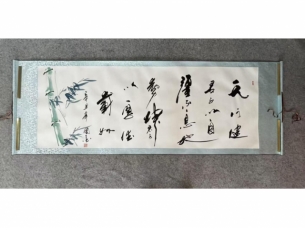 天行健
君子以自
强不息地
势坤君子
以厚德
载物